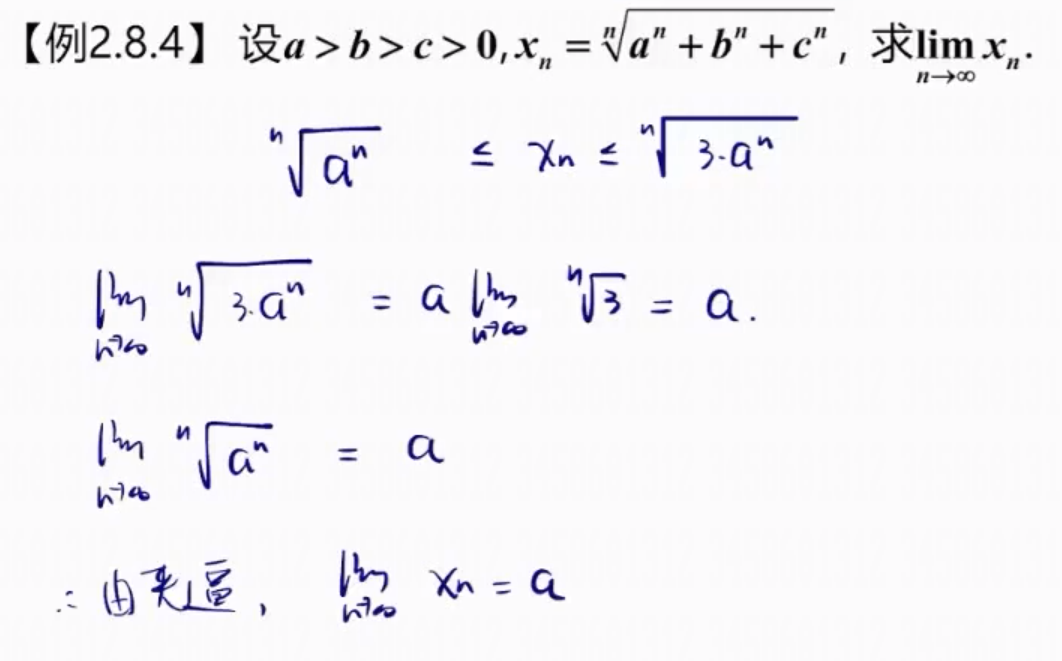 【例2.8.4】设a>b>c>0, xₙ = ⁿ√(aⁿ+bⁿ+cⁿ), 求lim_{n→∞} xₙ.
ⁿ√(aⁿ) ≤ xₙ ≤ ⁿ√(3·aⁿ)
lim_{n→∞} ⁿ√(3·aⁿ) = a lim_{n→∞} ⁿ√3 = a.
lim_{n→∞} ⁿ√(aⁿ) = a
∴ 由夹逼, lim_{n→∞} xₙ = a